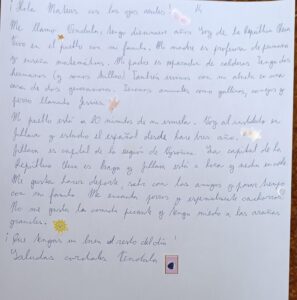 ¡Hola Mateus con los ojos azules!
Me llamo Tendula, tengo diecinueve años. Soy de la República Checa
Vivo en el pueblo con mi familia. Mi madre es profesora de primaria
y enseña matemáticas. Mi padre es reparador de calderas. Tengo dos
hermanos (y somos trillizos). También vivimos con mi abuela en una
casa de dos generaciones. Tenemos animales como gallinas, conejos y
perro llamado
Mi pueblo está a 20 minutos de mi escuela. Voy al instituto en
Jihlava y estudio el español desde hace tres años.
Jihlava es capital de la región de Vysočina. La capital de la
República Checa es Praga y Jihlava está a hora y media
Me gusta hacer deporte, salir con los amigos y pasar tiempo
con mi familia. Me encanta perros y especialmente cachorros
No me gusta la comida picante y tengo miedo a las arañas
grandes.
¡Que tengas un buen el resto del día!
Saludos cordiales Tendula